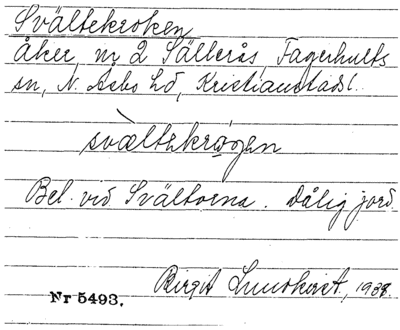 Svältekroken
åker, nr 2 Sällerås, Fagerhults
sn, N. Åsbo hd, Kristianstads l.
svæltekrogen
Bel. vid Svältorna. Dålig jord.
Birgit Lundkvist, 1938.
Nr 5493.